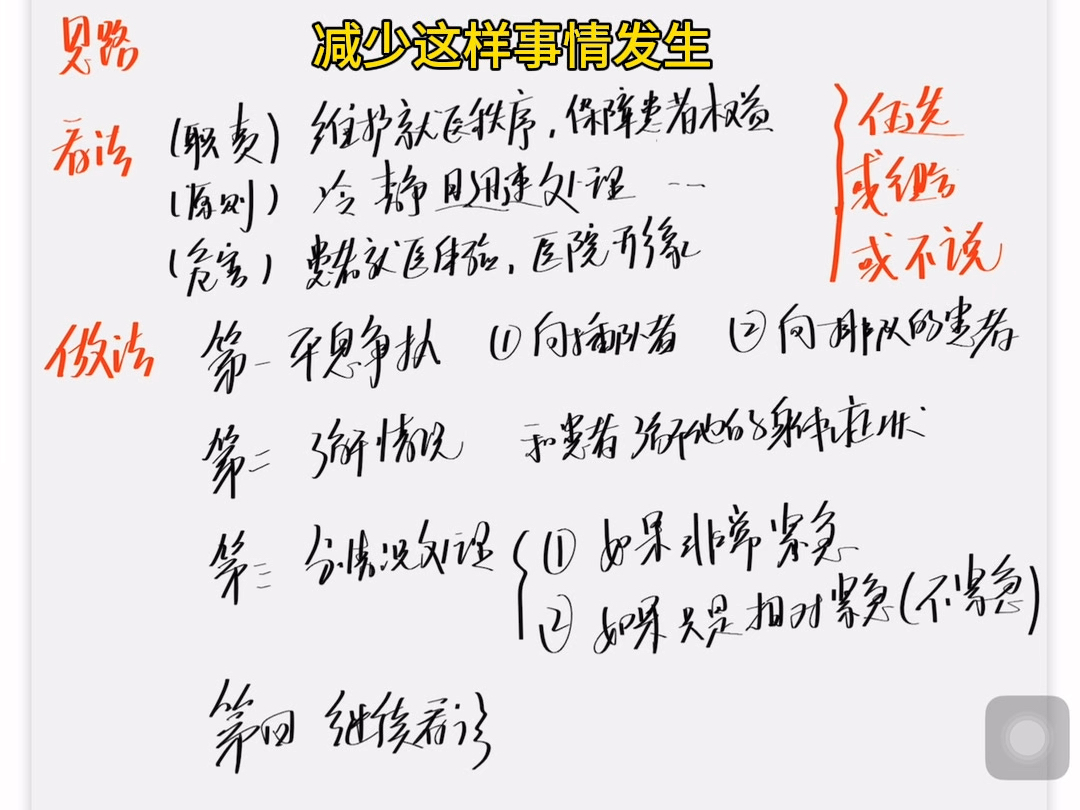 思路
减少这样事情发生
看法 (职责) 维护就医秩序，保障患者权益
(原则) 冷静且迅速处理 ---
(危害) 患者就医体验，医院形象
任选
或组合
或不说
做法 第一 平息争执 ① 向插队者 ② 向排队的患者
第二 了解情况 和患者了解他的身体症状
第三 分情况处理 ① 如果非常紧急
② 如果只是相对紧急(不紧急)
第四 继续看诊